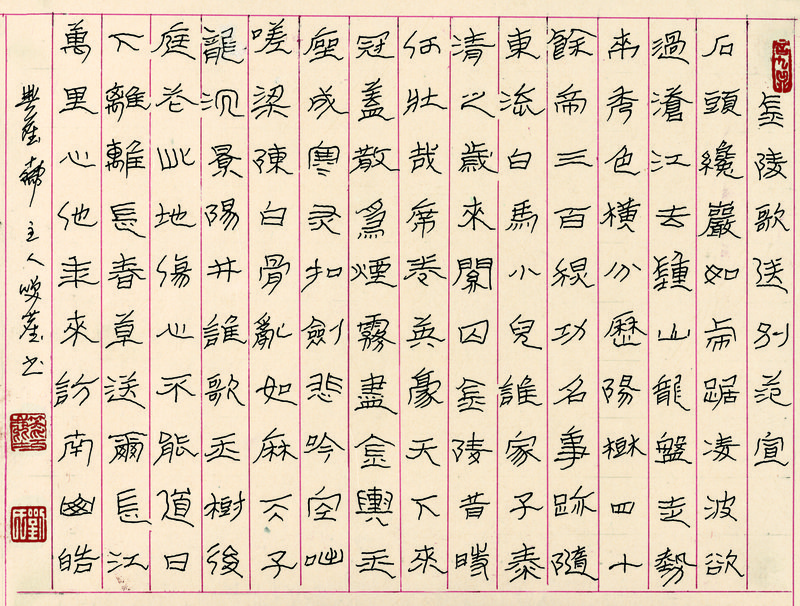 金陵歌送別范宣
石頭巉巖如虎踞凌波欲
過滄江去鍾山龍盤走勢
来秀色橫分歷陽樹四十
餘帝三百秋功名事跡隨
東流白馬小兒誰家子泰
清之歲來關囚金陵昔時
何壯哉席卷英豪天下來
冠蓋散爲煙霧盡金輿玉
座成寒灰扣劍悲吟空咄
嗟梁陳白骨亂如麻天子
龍沉景陽井誰歌玉樹後
庭花此地傷心不能道目
下離離長春草送爾長江
萬里心他年來訪南幽皓
主人書